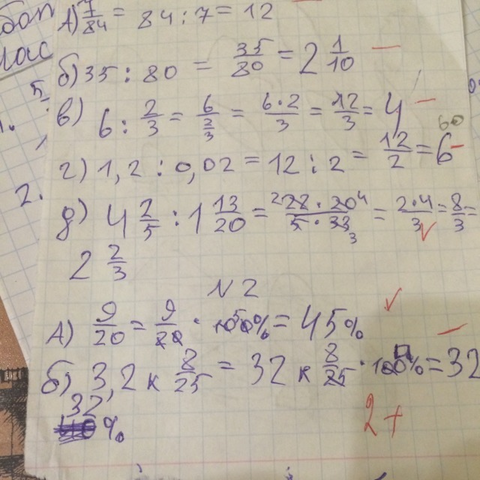 А) 7/84 = 84 : 7 = 12
б) 35 : 80 = 35/80 = 2 1/10
в) 6 : 2/3 = 6/(2/3) = 6·2/3 = 12/3 = 4
60
г) 1,2 : 0,02 = 12 : 2 = 12/2 = 6
д) 4 2/5 : 1 13/20 = 2 22·20 4/5·33 3 = 2·4/3 = 8/3 =
2 2/3
N 2
А) 9/20 = 9/20 · 100% = 45%
б) 3,2 к 8/25 = 32 к 8/25 · 100% = 32
32
%
2+